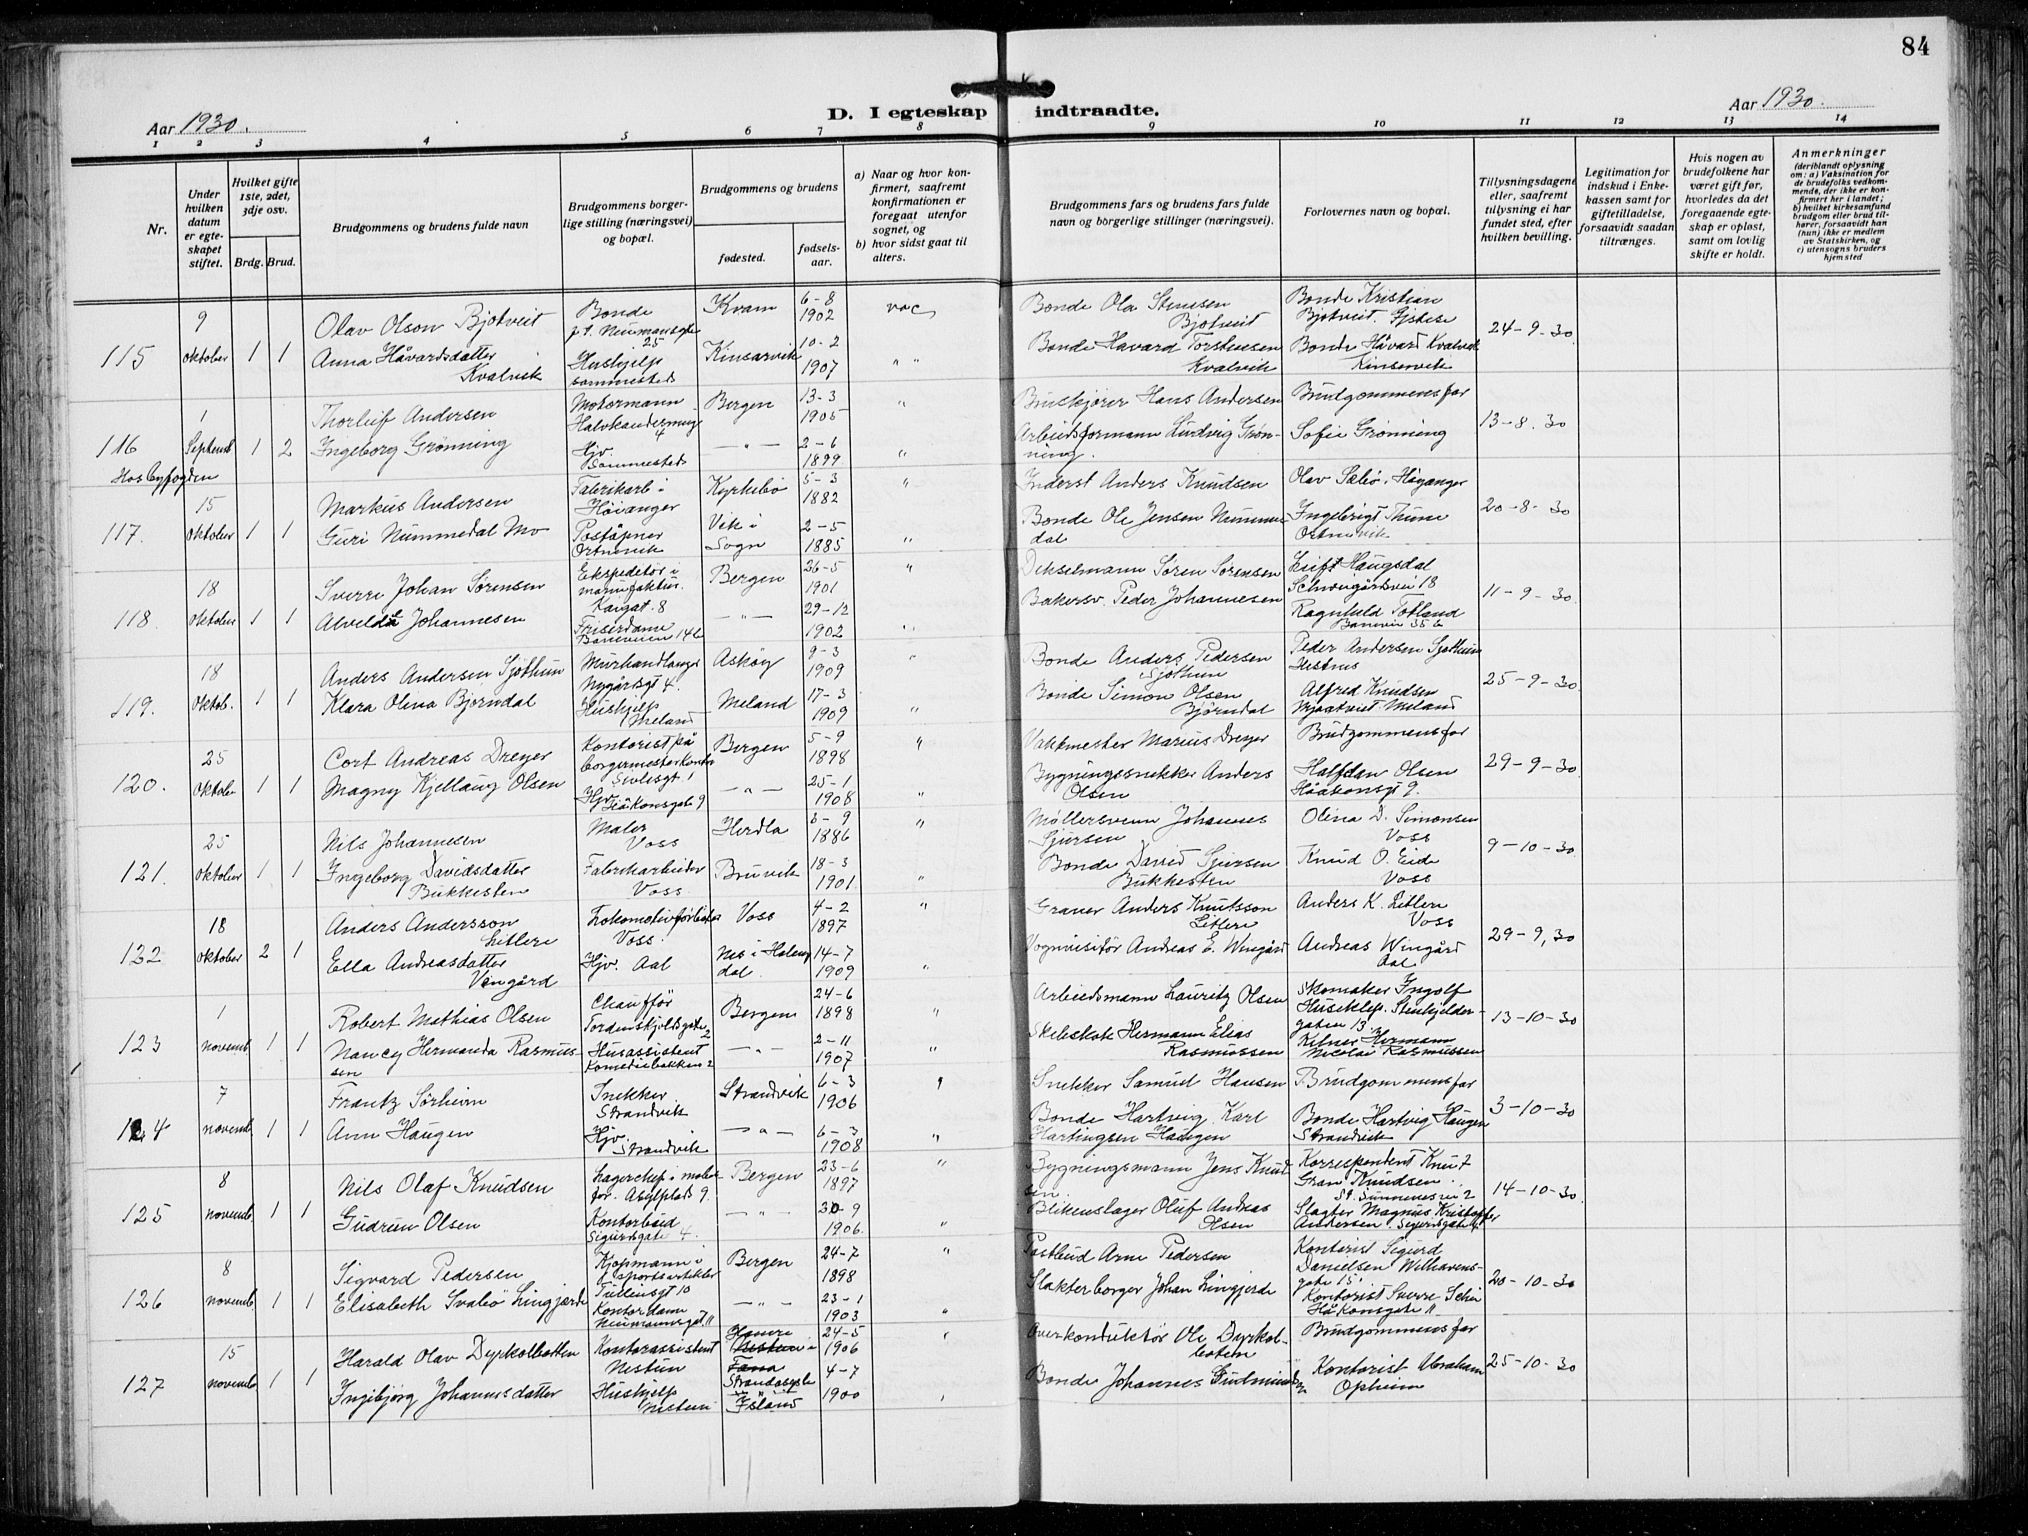 84
Aar 1930.
D. I egteskap indtraadte.
Aar 1930.
1 2 3 4 5 6 7 8 9 10 11 12 13 14
Nr.
Under hvilken datum er egteskapet stiftet.
Hvilket gifte 1ste, 2det, 3dje osv.
Brdg. Brud.
Brudgommens og brudens fulde navn
Brudgommens borgerlige stilling (næringsvei) og bopæl.
Brudgommens og brudens
fødested.
fødselsaar.
a) Naar og hvor konfirmert, saafremt konfirmationen er foregaat utenfor sognet, og
b) hvor sidst gaat til alters.
Brudgommens fars og brudens fars fulde navn og borgerlige stillinger (næringsvei).
Forlovernes navn og bopæl.
Tillysningsdagene eller, saafremt tillysning ei har fundet sted, efter hvilken bevilling.
Legitimation for indskud i Enkekassen samt for giftetilladelse, forsaavidt saadan tiltrænges.
Hvis nogen av brudefolkene har været gift før, hvorledes da det foregaaende egteskap er opløst, samt om lovlig skifte er holdt.
Anmerkninger
(deriblandt oplysning om: a) Vaksination for de brudefolks vedkommende, der ikke er konfirmert her i landet; b) hvilket kirkesamfund brudgom eller brud tilhører, forsaavidt han (hun) ikke er medlem av Statskirken, og c) utensogns bruders hjemsted
115 9 oktober 1 1
Olav Olson Bjotveit Bonde p.t. Neumansgte 25 Kvam 6-8 1902 vac
Bonde Ola Steinsen Bjotveit Bonde Kristian Bjotveit. 24-9-30
Anna Håvardsdatter Kvalvik Hushjelp sammesteds Kinsarvik 10-2 1907 " "
Bonde Havard Torsteinsen Kvalvik Bonde Håvard Kvalvik Kinservik
116 1 Septemb 1 2
Hos byfogden
Thorleif Andersen Motormann 4 Bergen 13-3 1905 "
Hans Andersen Brudgommens far 13-8-30
Ingeborg Grønning Hjv. Sammesteds -"- 2-6 1899 "
Arbeidsformann Ludvig Grønning. Sofie Grønning
117. 15 oktober 1 1
Markus Andersen Fabrikarb i Høianger Kyrkebø 5-3 1882 "
Inderst Anders Knudsen Olav Sæbø. Høyanger 20-8-30
Guri Nummedal Mo Poståpner Ortnevik Vik i Sogn 2-5 1885 "
Bonde Ole Jensen Nummedal Ingebrigt Thune Ortnevik
118. 18 oktober 1 1
Sverre Johan Sørensen Ekspeditør i manufaktur. Kaigat. 8 Bergen 26-5 1901 "
Søren Sørensen Leif Haugsdal 18 11-9-30
Johannesen Friserdame Baneveien 14 b -"- 29-12 1902 "
Bakersv. Peder Johannesen Ragnhild Totland 35 b
119. 18 oktob. 1 1
Anders Andersen Sjøthun Murhandlanger Nygårdsgt 4. Askøy 9-3 1909 "
Bonde Anders Pedersen Sjøthun Peder Andersen Sjøthun 25-9-30
Klara Olina Bjørndal Hushjelp Meland Meland 17-3 1909 "
Bonde Simon Olsen Bjørndal Alfred Knudsen Meland
120. 25 oktober 1 1
Cort Andreas Dreyer Kontorist på borgermesterkontor Sivlesgt. 1 Bergen 5-9 1898 "
Vaktmester Marius Dreyer Brudgommens far 29-9-30
Magny Kjellaug Olsen Hjv. Håkonsgate 9 -"- 25-1 1908 "
Bygningssnekker Anders Olsen Halfdan Olsen Håakonsgt 9.
121. 25 oktober 1 1
Nils Johannesen Maler Voss Herdla 1886 "
Møllersvenn Johannes Sjursen Olina D. Simonsen Voss 9-10-30
Ingeborg Davidsdatter Bukkesten Fabrikarbeider Voss. Bruvik 18-3 1901. "
Bonde David Sjursen Bukkesten Knud O. Eide Voss
122 18 oktober 2 1
Anders Andersson Litlere Voss. Voss 4-2 1897 "
Graver Anders Knutsson Litlere Anders K. Litlere Voss 29-9,30
Ella Andreasdatter Vingård Hjv. Aal Nes i Halingdal. 14-7 1909 "
Vognvisitør Andreas E. Wingård Andreas Wingård Aal
123 1 novemb. 1 1
Robert Mathias Olsen Chauffør Tordenskjoldsgate 2 Bergen 24-6 1898 "
Arbeidsmann Lauritz Olsen Skomaker Ingolf Huseklep. Steinkjeldergaten 13 13-10-30
Nancy Hermanda Rasmussen Husassistent Komediebakken 2 -"- 2-11 1907 "
Hermann Elias Rasmussen Kelner Hermann Nicolai Rasmussen
124 7 novemb. 1 1
Frantz Sørheim Snekker Strandvik Strandvik 6-3 1906 "
Snekker Samuel Hansen Brudgommens far 3-10-30
Ann Haugen Hjv. Strandvik -"- 6-3 1908 "
Bonde Hartvig Karl Haugen Bonde Hartvig Haugen Strandvik
125 8 novemb. 1 1
Nils Olaf Knudsen Lagerchef i Asylplads 9. Bergen 23-6 1897 "
Bygningsmann Jens Knudsen. Korrespondent Knut Gran Knudsen. 2 14-10-30
Gudrun Olsen Kontorbud Sigurdsgate 4. -"- 30-9 1906. "
Blikenslager Oluf Andreas Olsen Slagter Magnus Kristoffer Andersen. Sigurdsgate 4
126 8 novemb. 1 1
Sigvard Pedersen Kjøpmann i sportsartikler Tullinsgt 10 Bergen 24-7 1898 "
Postbud Arne Pedersen Kontorist Sigurd Danielsen Welhavensgate 15. 20-10-30
Elisabeth Svabø Lingjerde Kontordame Neumannsgt. 11 -"- 23-1 1903 "
Slakterborger Johan Lingjerde Kontorist Sverre Håkonsgate 11
127 15 novemb. 1 1
Harald Olav Dyrkolbotten Kontorassistent Nestun Nestun i Fana 24-5 1906 "
Overkonduktør Ole Dyrkolbotten Brudgommens far 25-10-30
Ingibjørg Johannesdatter Hushjelp Nestun Island 4-7 1900
Bonde Johannes Kontorist Abraham Opheim